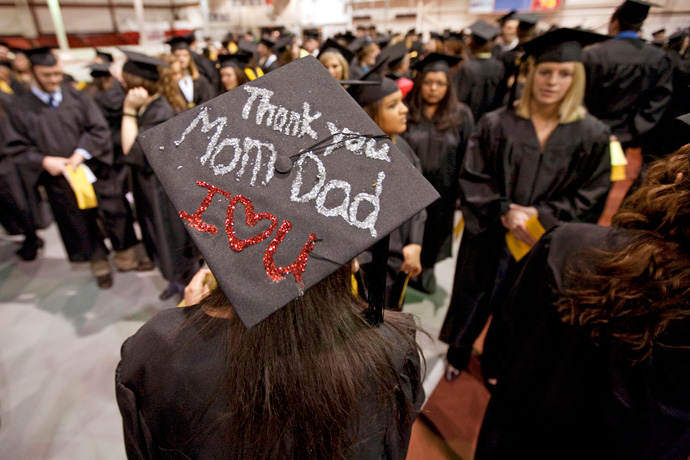 Thank You
Mom Dad
I ♥ U